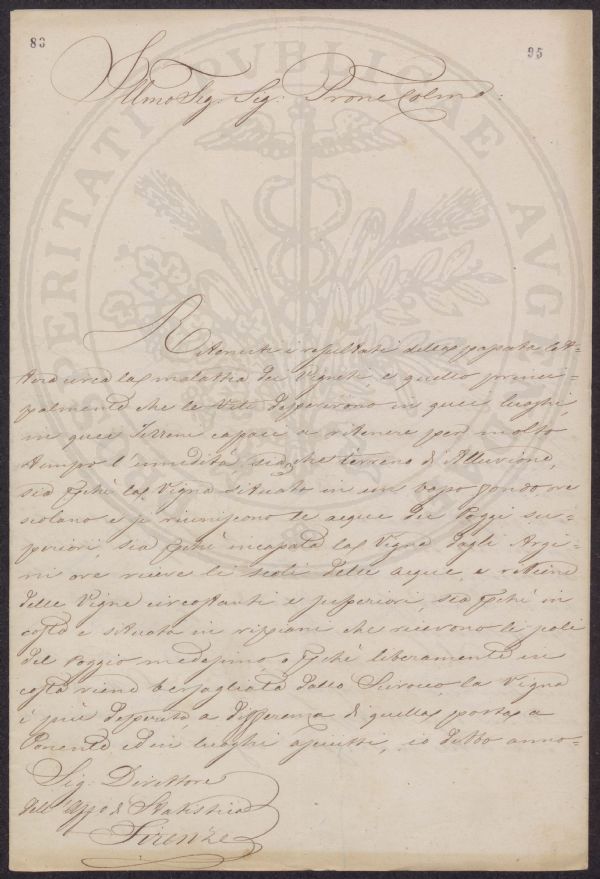 83
95
Illmo Sig. Sig. Prone Colmo:
Ritenuti i resultati della passata let=
tera circa la malattia dei Vigneti, e quello princi=
palmente che le Viti deperirono in quei luoghi,
in quei Terreni capaci a ritenere per molto
tempo l'umidità, sia che terreno d'Alluvione,
sia perchè la Vigna situata in un basso fondo ove
scolano e si riuniscono le acque dei Poggi su=
periori, sia perchè incassata la Vigna dagli Argi=
ni ove riceve li scoli delle acque e
delle Vigne circostanti e superiori, sia perchè in
costa e situata in rispiani che ricevono le
del Poggio medesimo o perchè liberamente in
costa viene bersagliata dallo Scirocco la Vigna
è più deperita a differenza di quella posta a
Ponente ed in luoghi asciutti, io debbo anno=
Sig. Direttore
dell'Uffo di Statistica
Firenze
PROSPERITATI PVBLICAE AVGENDAE